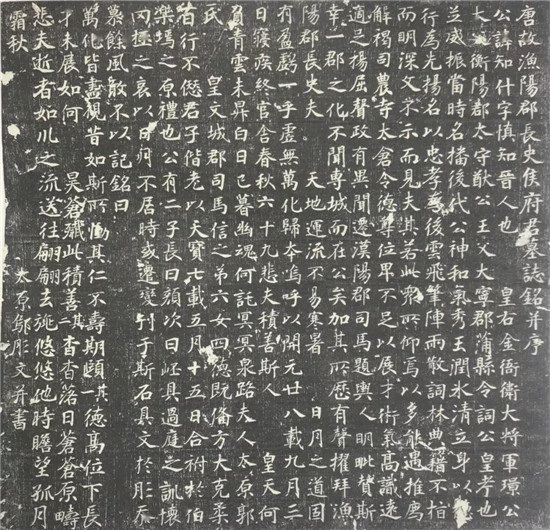 唐故漁陽郡長史侯府君墓誌銘并序
公諱知什字慎知晉人也 皇右金吾衛大將軍璟公
大父衡陽郡太守猷公王父大寧郡蒲縣令詞公皇考也
並威振當時名播後代公神和氣秀玉潤氷清立身以
行為先揚名以忠孝為後雲飛筆陣雨散詞林典籍不怡
而明深文不示而見夫其若此眾所仰焉以多能遇推薦
解褐司農寺太倉令德尊位卑不足以展才術氣高識遠
適足揚屈聲政有異聞遷漢陽郡司馬題輿人明毗贊斯
幸一郡之化不聞專城而在公矣加其所歷有聲擢拜漁
陽郡長史夫 天地運流不易寒暑 日月之道固
有盈虧一乎虛無萬化歸本嗚呼以開元廿八載九月三
日寢疾終官舍春秋六十九悲夫積善斯人 皇天何
負青雲未昇白日已暮幽魂何託冥冥泉路夫人太原郭
氏 皇文城郡司馬信之第六女四德既備方大克柔
行不愆君子偕老以天寶七載五月十五日合祔於伯
樂塢之原禮也公有二子長曰顏次曰岯具過庭之訓懷
罔極之哀以日月不居時或遷變刊于斯石具文於彤忝
慕餘風敢不以記銘曰
萬化皆盡視昔如斯所慟其仁不壽期頤其一德高位下長
才未展如何 昊蒼殲此積善其二杳杳落日蒼蒼原疇
悲夫逝者如川之流送往翩翩去旐悠悠他時瞻望孤月
霜秋 太原郇彤文并書